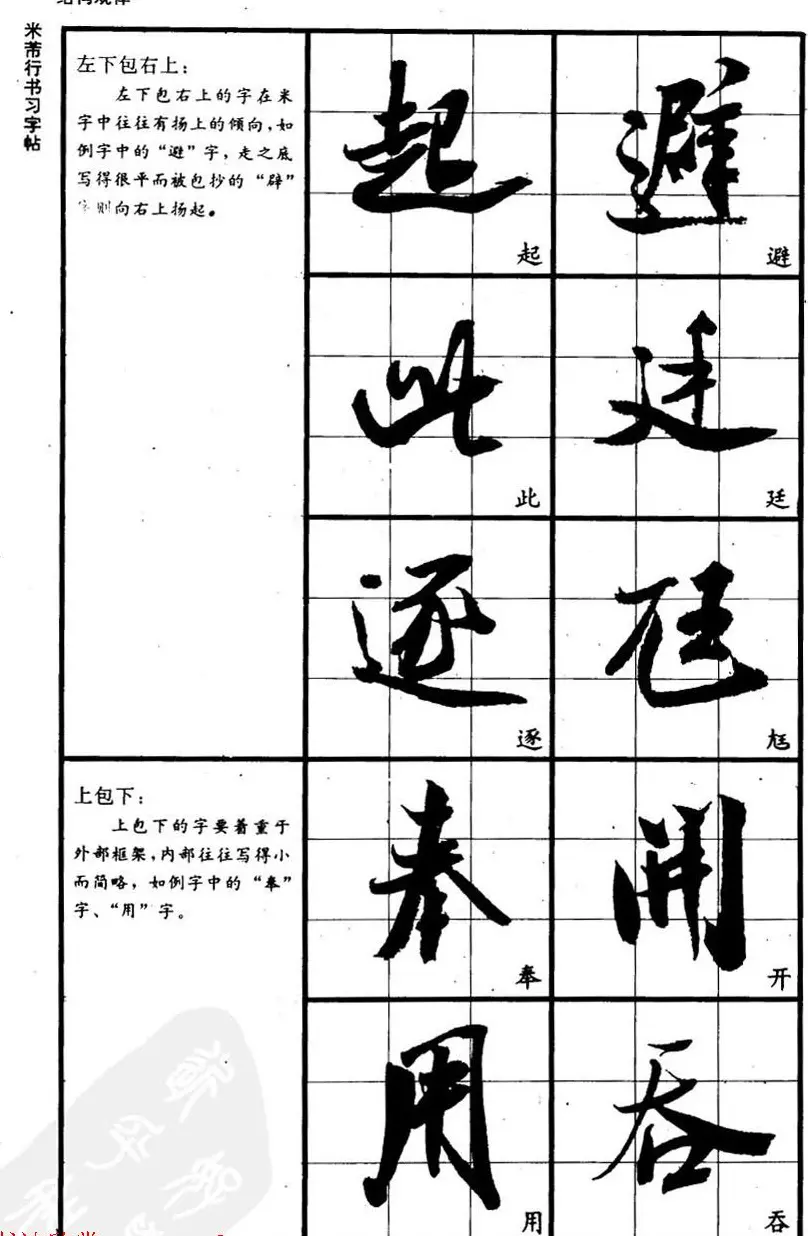 米芾行书习字帖
左下包右上：
左下包右上的字在米
字中往往有扬上的倾向，如
例字中的“避”字，走之底
写得很平而被包抄的“辟”
则向右上扬起。
起 避
起 避
此 廷
此 廷
逐 尪
逐 尪
上包下：
上包下的字要着重于
外部框架，内部往往写得小
而简略，如例字中的“奉”
字、“用”字。
奉 開
奉 开
用 吞
用 吞